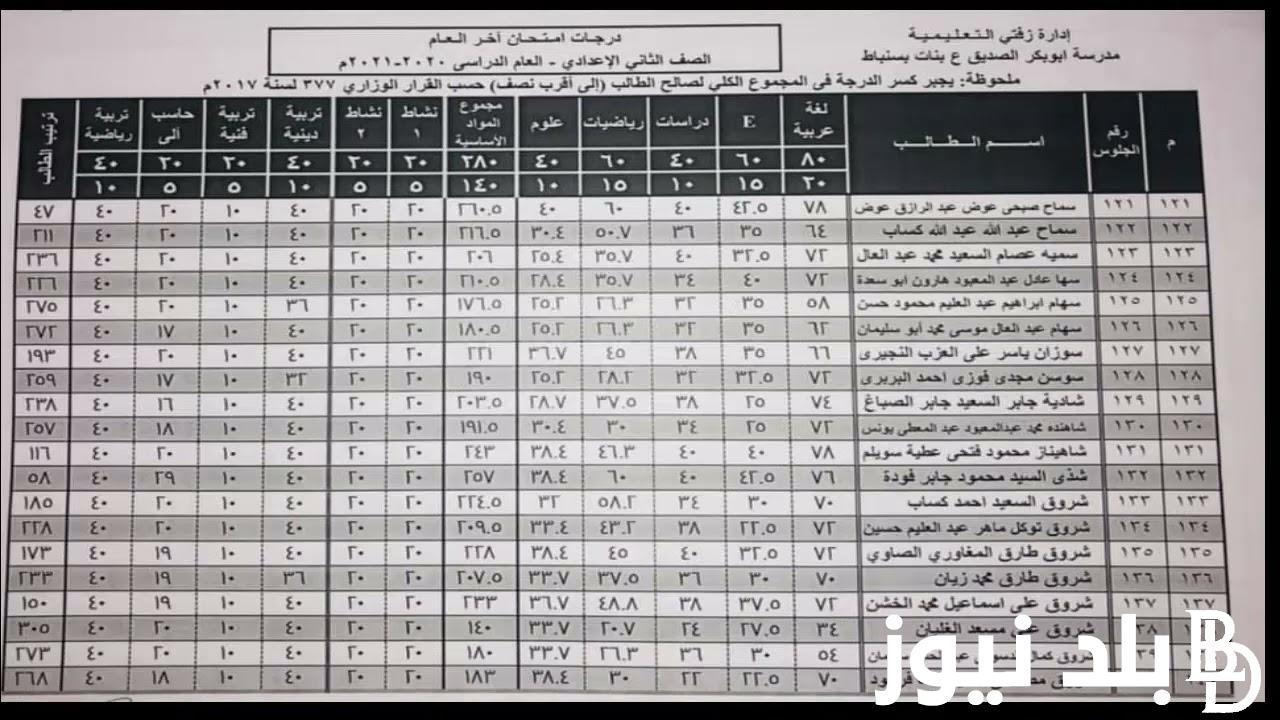 إدارة زفتي التعليمية
مدرسة ابوبكر الصديق ع بنات بسنباط
درجات امتحان آخر العام
الصف الثاني الإعدادي - العام الدراسى ٢٠٢٠-٢٠٢١م
ملحوظة: يجبر كسر الدرجة فى المجموع الكلي لصالح الطالب (إلى أقرب نصف) حسب القرار الوزاري ٣٧٧ لسنة ٢٠١٧م
م رقم الجلوس اسم الطالب لغة عربية E دراسات رياضيات علوم مجموع المواد الأساسية نشاط ١ نشاط ٢ تربية دينية تربية فنية حاسب ألى تربية رياضية ترتيب الطالب
٨٠ ٦٠ ٤٠ ٦٠ ٤٠ ٢٨٠ ٢٠ ٢٠ ٤٠ ٢٠ ٢٠ ٤٠
٢٠ ١٥ ١٠ ١٥ ١٠ ١٤٠ ٥ ٥ ١٠ ٥ ٥ ١٠
١٢١ ١٢١ سماح صبحى عوض عبد الرازق عوض ٧٨ ٤٢.٥ ٤٠ ٦٠ ٤٠ ٢٦٠.٥ ٢٠ ٢٠ ٤٠ ١٠ ٢٠ ٤٠ ٤٧
١٢٢ ١٢٢ سماح عبد الله عبد الله كساب ٦٤ ٣٥ ٣٦ ٥٠.٧ ٣٠.٤ ٢١٦.٥ ٢٠ ٢٠ ٤٠ ١٠ ٢٠ ٤٠ ٢١١
١٢٣ ١٢٣ سميه عصام السعيد محمد عبد العال ٧٢ ٣٢.٥ ٤٠ ٣٥.٧ ٢٥.٤ ٢٠٦ ٢٠ ٢٠ ٤٠ ١٠ ٢٠ ٤٠ ٢٣٦
١٢٤ ١٢٤ سها عادل عبد المعبود هارون ابو سعدة ٧٢ ٤٠ ٣٤ ٣٥.٧ ٢٨.٤ ٢١٠.٥ ٢٠ ٢٠ ٤٠ ١٠ ٢٠ ٤٠ ٢٢٦
١٢٥ ١٢٥ سهام ابراهيم عبد العليم محمود حسن ٥٨ ٣٥ ٣٢ ٢٦.٣ ٢٥.٢ ١٧٦.٥ ٢٠ ٢٠ ٣٦ ١٠ ٢٠ ٤٠ ٢٧٥
١٢٦ ١٢٦ سهام عبد العال موسى محمد أبو سليمان ٦٢ ٣٥ ٣٢ ٢٦.٣ ٢٥.٢ ١٨٠.٥ ٢٠ ٢٠ ٤٠ ١٠ ١٧ ٤٠ ٢٧٢
١٢٧ ١٢٧ سوزان ياسر على العزب النجيرى ٦٦ ٣٥ ٣٨ ٤٥ ٣٦.٧ ٢٢١ ٢٠ ٢٠ ٤٠ ١٠ ٢٠ ٤٠ ١٩٣
١٢٨ ١٢٨ سوسن مجدى فوزى احمد البربرى ٧٢ ٣٢.٥ ٣٢ ٢٨.٢ ٢٥.٢ ١٩٠ ٢٠ ٢٠ ٣٢ ١٠ ١٧ ٤٠ ٢٥٩
١٢٩ ١٢٩ شادية جابر السعيد جابر الصباغ ٧٤ ٢٥ ٣٨ ٣٧.٥ ٢٨.٧ ٢٠٣.٥ ٢٠ ٢٠ ٤٠ ١٠ ١٦ ٤٠ ٢٣٨
١٣٠ ١٣٠ شاهنده محمد عبدالمعبود عبد المعطى يونس ٧٢ ٢٥ ٣٤ ٣٠ ٣٠.٤ ١٩١.٥ ٢٠ ٢٠ ٤٠ ١٠ ١٨ ٤٠ ٢٥٧
١٣١ ١٣١ شاهيناز محمود فتحى عطية سويلم ٧٨ ٤٠ ٤٠ ٤٦.٣ ٣٨.٤ ٢٤٣ ٢٠ ٢٠ ٤٠ ١٠ ٢٠ ٤٠ ١١٦
١٣٢ ١٣٢ شذى السيد محمود جابر فودة ٧٦ ٤٢.٥ ٤٠ ٦٠ ٣٨.٤ ٢٥٧ ٢٠ ٢٠ ٤٠ ١٠ ٢٩ ٤٠ ٥٨
١٣٣ ١٣٣ شروق السعيد احمد كساب ٧٠ ٣٠ ٣٤ ٥٨.٢ ٣٢ ٢٢٤.٥ ٢٠ ٢٠ ٤٠ ١٠ ٢٠ ٤٠ ١٨٥
١٣٤ ١٣٤ شروق توكل ماهر عبد العليم حسين ٧٢ ٢٢.٥ ٣٨ ٤٣.٢ ٣٣.٤ ٢٠٩.٥ ٢٠ ٢٠ ٤٠ ١٠ ٢٠ ٤٠ ٢٢٨
١٣٥ ١٣٥ شروق طارق المغاوري الصاوي ٧٢ ٣٢.٥ ٤٠ ٤٥ ٣٨.٤ ٢٢٨ ٢٠ ٢٠ ٤٠ ١٠ ١٩ ٤٠ ١٧٣
١٣٦ ١٣٦ شروق طارق محمد زيان ٧٠ ٣٠ ٣٦ ٣٧.٥ ٣٣.٧ ٢٠٧.٥ ٢٠ ٢٠ ٣٦ ١٠ ١٩ ٤٠ ٢٣٣
١٣٧ ١٣٧ شروق على اسماعيل محمد الخشن ٧٢ ٣٧.٥ ٣٨ ٤٨.٨ ٣٦.٧ ٢٣٣ ٢٠ ٢٠ ٤٠ ١٠ ١٩ ٤٠ ١٥٠
شروق على مسعد الغلبان ٣٤ ٢٧.٥ ٢٤ ٢٠.٧ ٣٣.٧ ١٤٠ ٢٠ ٢٠ ٤٠ ١٠ ٢٠ ٤٠ ٣٠٥
شروق ٥٤ ٣٠ ٣٦ ٢٦.٣ ٣٣.٧ ١٨٠ ٢٠ ٢٠ ٤٠ ١٠ ٢٠ ٤٠ ٢٧٣
٧٠ ٢٢.٥ ٢٢ ٣٠ ٣٨.٤ ١٨٣ ٢٠ ٢٠ ٤٠ ١٠ ١٨ ٤٠ ٢٦٨
بلد نيوز
B
D